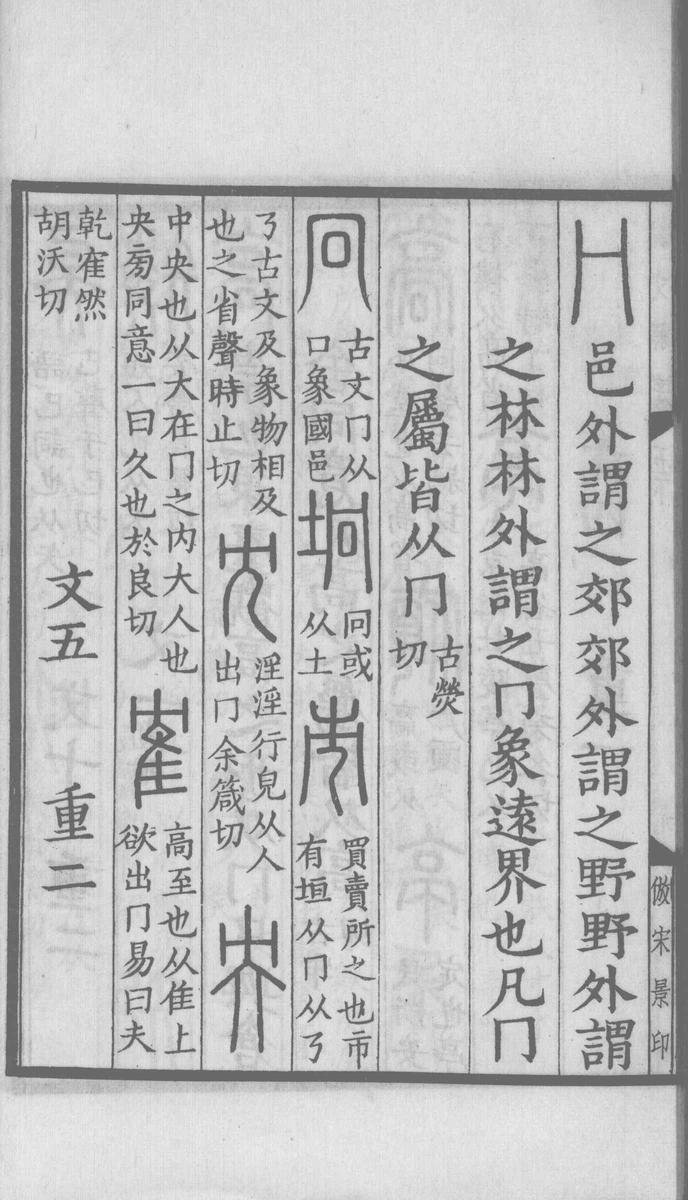 冂邑外謂之郊郊外謂之野野外謂
之林林外謂之冂象逺界也凡冂
之屬皆从冂古熒切
冋古文冂从口象國邑坰冋或从土市買賣所之也市有垣从冂从ㄋ
ㄋ古文及象物相及也之省聲時止切冘淫淫行皃从人出冂余箴切央
中央也从大在冂之内大人也央㫄同意一曰久也於良切隺高至也从隹上欲出冂易曰夫
乾隺然胡沃切 文五 重二
倣宋景印